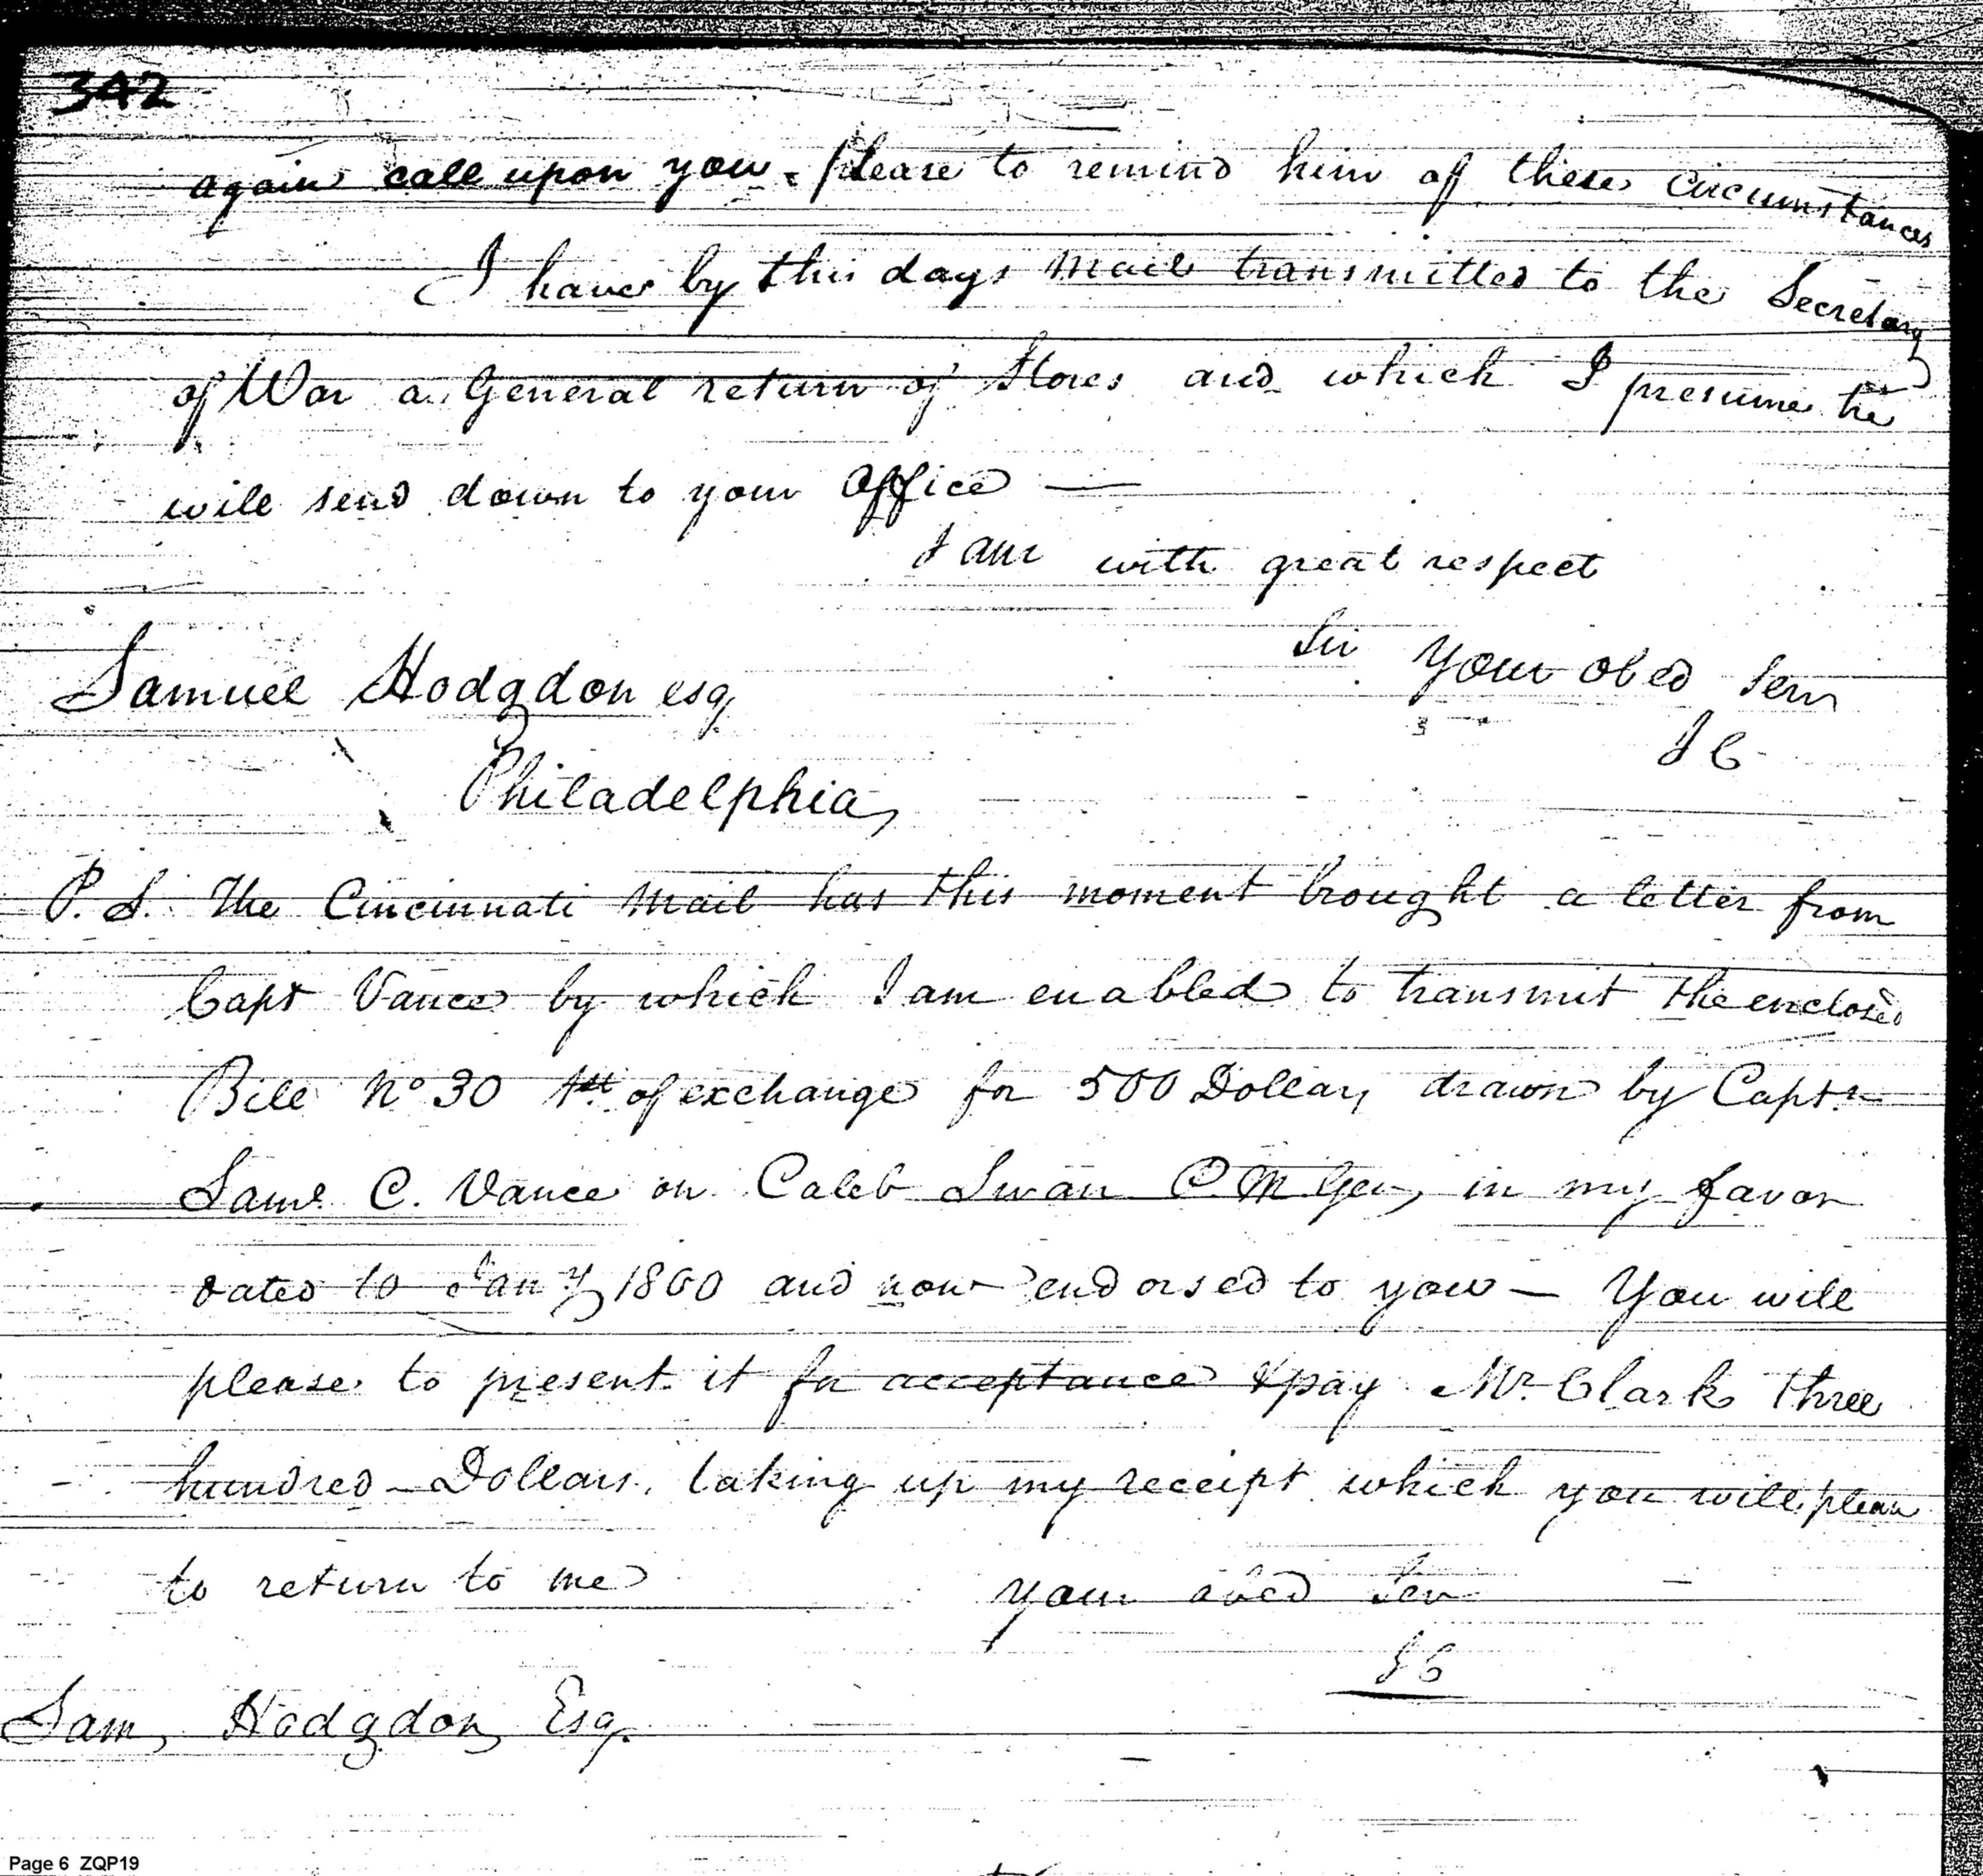 342
again call upon you. please to remind him of these circumstances
I have by this days Mail transmitted to the Secretary
of War a General return of Stores and which I presume he
will send down to your Office —
I am with great respect
Sir your obed Serv
Samuel Hodgdon esq
I C
Philadelphia,
P. S. The Cincinnati Mail has this moment brought a letter from
Capt Vance by which I am enabled to transmit the enclosed
Bill No 30 1st of exchange for 500 Dollars drawn by Captn
Saml C. Vance on Caleb Swan P. M Gen, in my favor
dated 10 Jany 1800 and now endorsed to you — You will
please to present it for acceptance & pay Mr Clark three
hundred Dollars, taking up my receipt which you will please
to return to me your obed Serv
I C
Sam, Hodgdon Esq.
Page 6 ZQP19